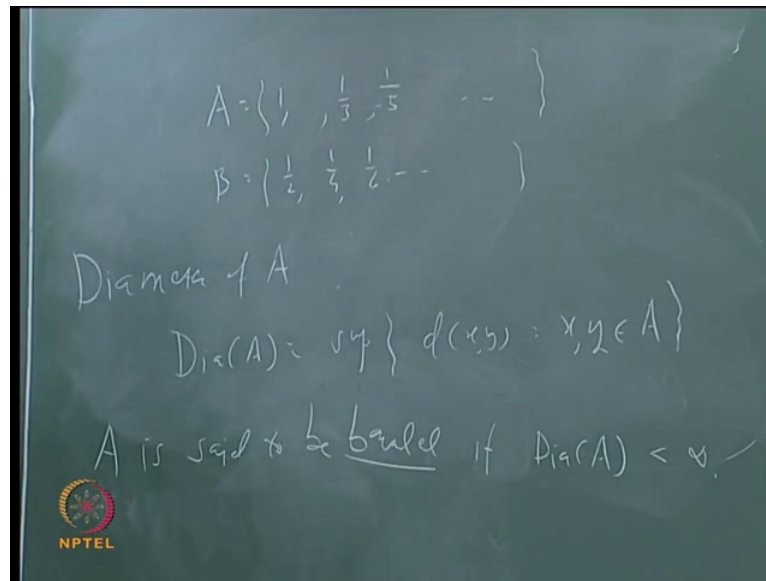 A = { 1, , 1/3, 1/5 -- }
B = { 1/2, 1/4, 1/6 -- }
Diameter of A .
Dia(A) = sup { d(x,y) : x, y ∈ A }
A is said to be bounded if Dia(A) < ∞.
NPTEL